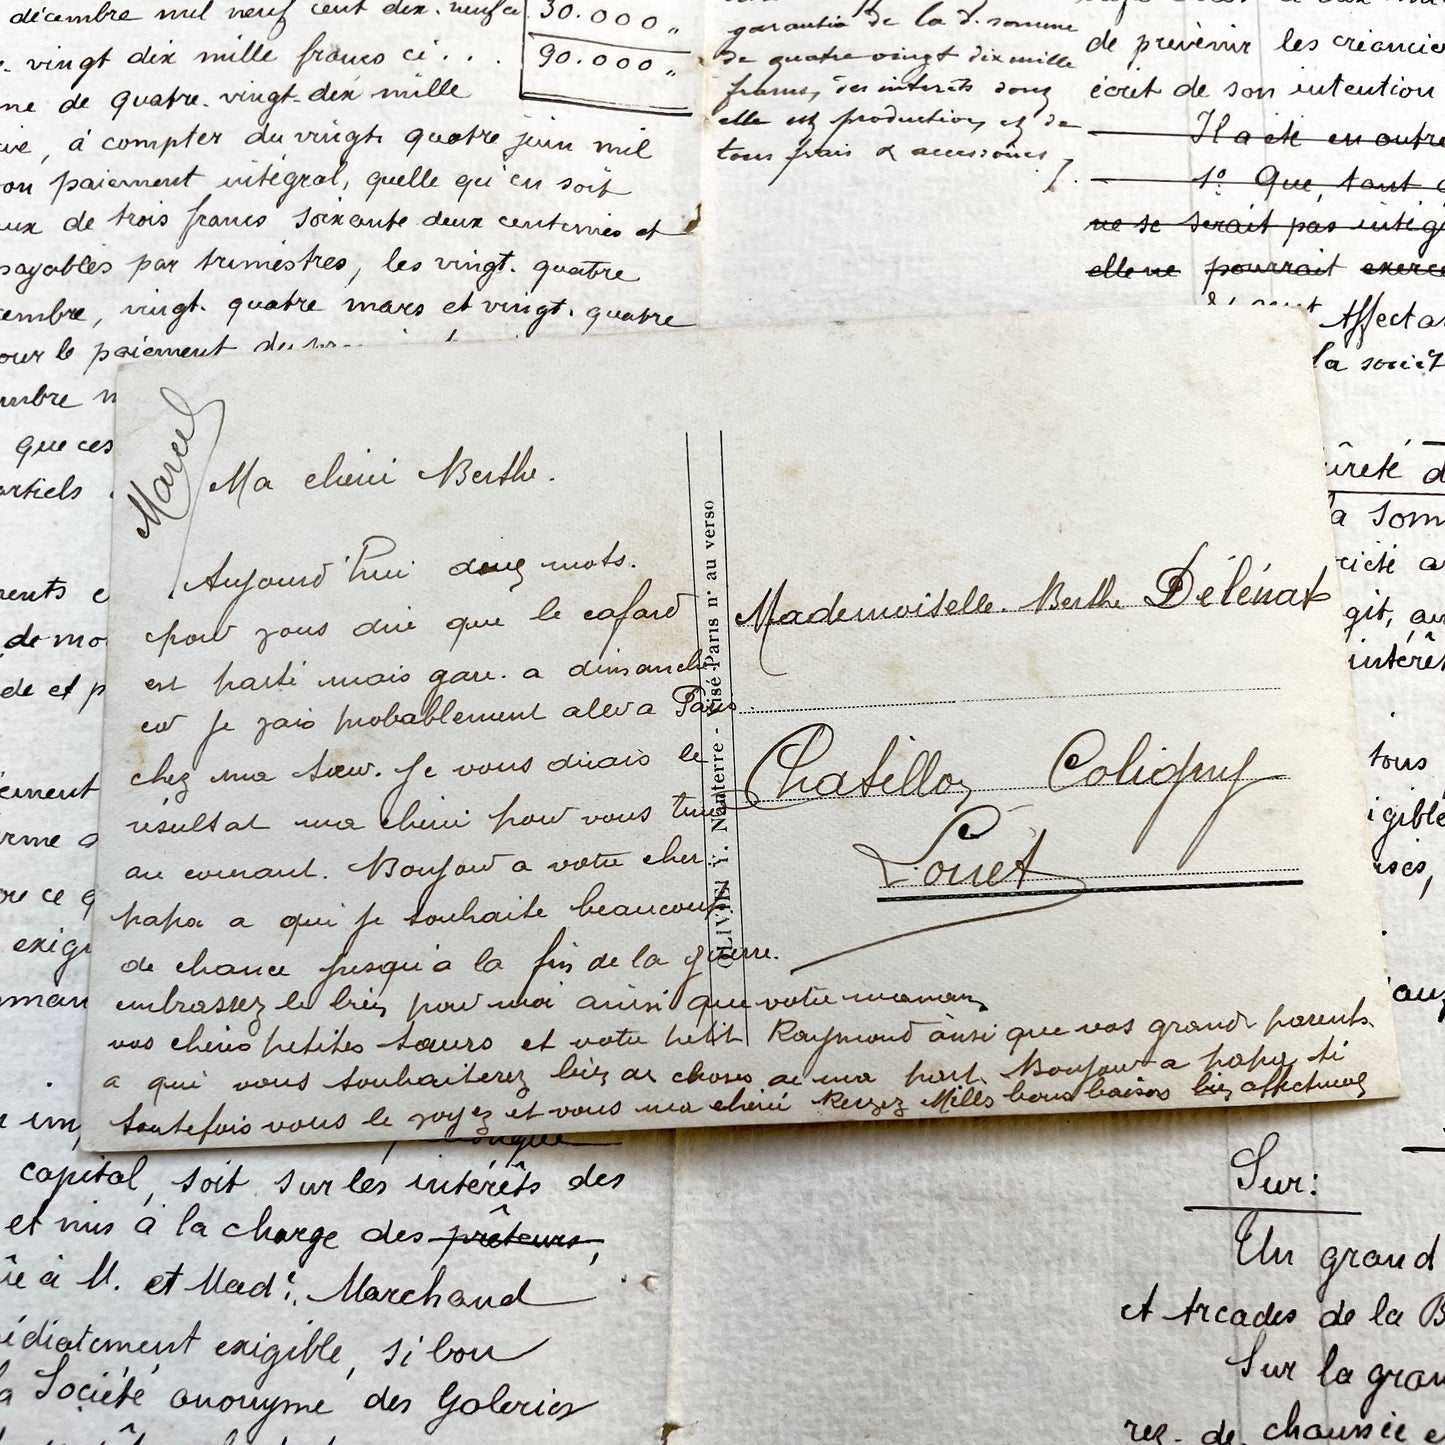 décembre mil neuf cent dix-neuf
30.000 "
vingt dix mille francs ci . . .
90.000 "
me de quatre-vingt-dix mille
à compter du vingt quatre juin mil
on paiement intégral, quelle qu'en soit
aux de trois francs soixante deux centimes et
payables par trimestres, les vingt-quatre
cembre, vingt-quatre mars et vingt-quatre
our le paiement
mbre
que ces
artiels
garantie de la d. somme
de quatre vingt dix mille
francs, des intérêts dont
elle est production, et de
tous frais & accessoires
de prévenir les créancie
écrit de son intention
Il a été en outre
1° Que, tant
ne se serait pas intég
elle ne pourrait exerce
Affecta
la sociét
ûreté d
a som
ciété a
git, au
intérêt
tous
igible
Marcel
Ma chérie Berthe.
Aujourd'hui deux mots.
pour vous dire que le cafard
est parti mais gare. a dimanche
car je vais probablement aller a Paris
chez ma sœur. Je vous dirais le
résultat ma cherie pour vous tenir
au courant. Bonjour a votre cher
papa a qui je souhaite beaucoup
de chance jusqu'à la fin de la guerre.
embrassez le bien pour moi ainsi que votre maman
vos chéries petites sœurs et votre petit Raymond ainsi que vos grands parents
a qui vous souhaiterez bien des choses de ma part. Bonjour a papa si
toutefois vous le voyez et vous ma chérie Recevez Mills bons baisers bien affectueux
OLIVIER Y. Nanterre - Visé Paris n° au verso
Mademoiselle Berthe Délénat
Chatillon Coligny
Loiret
capital, soit sur les intérêts des
et mis à la charge des prêteurs,
à M. et Mad: Marchand
édiatement exigible, si bon
la Société anonyme des Galeries
Sur:
Un grand
et Arcades de la B
Sur la gran
rez-de-chaussée e